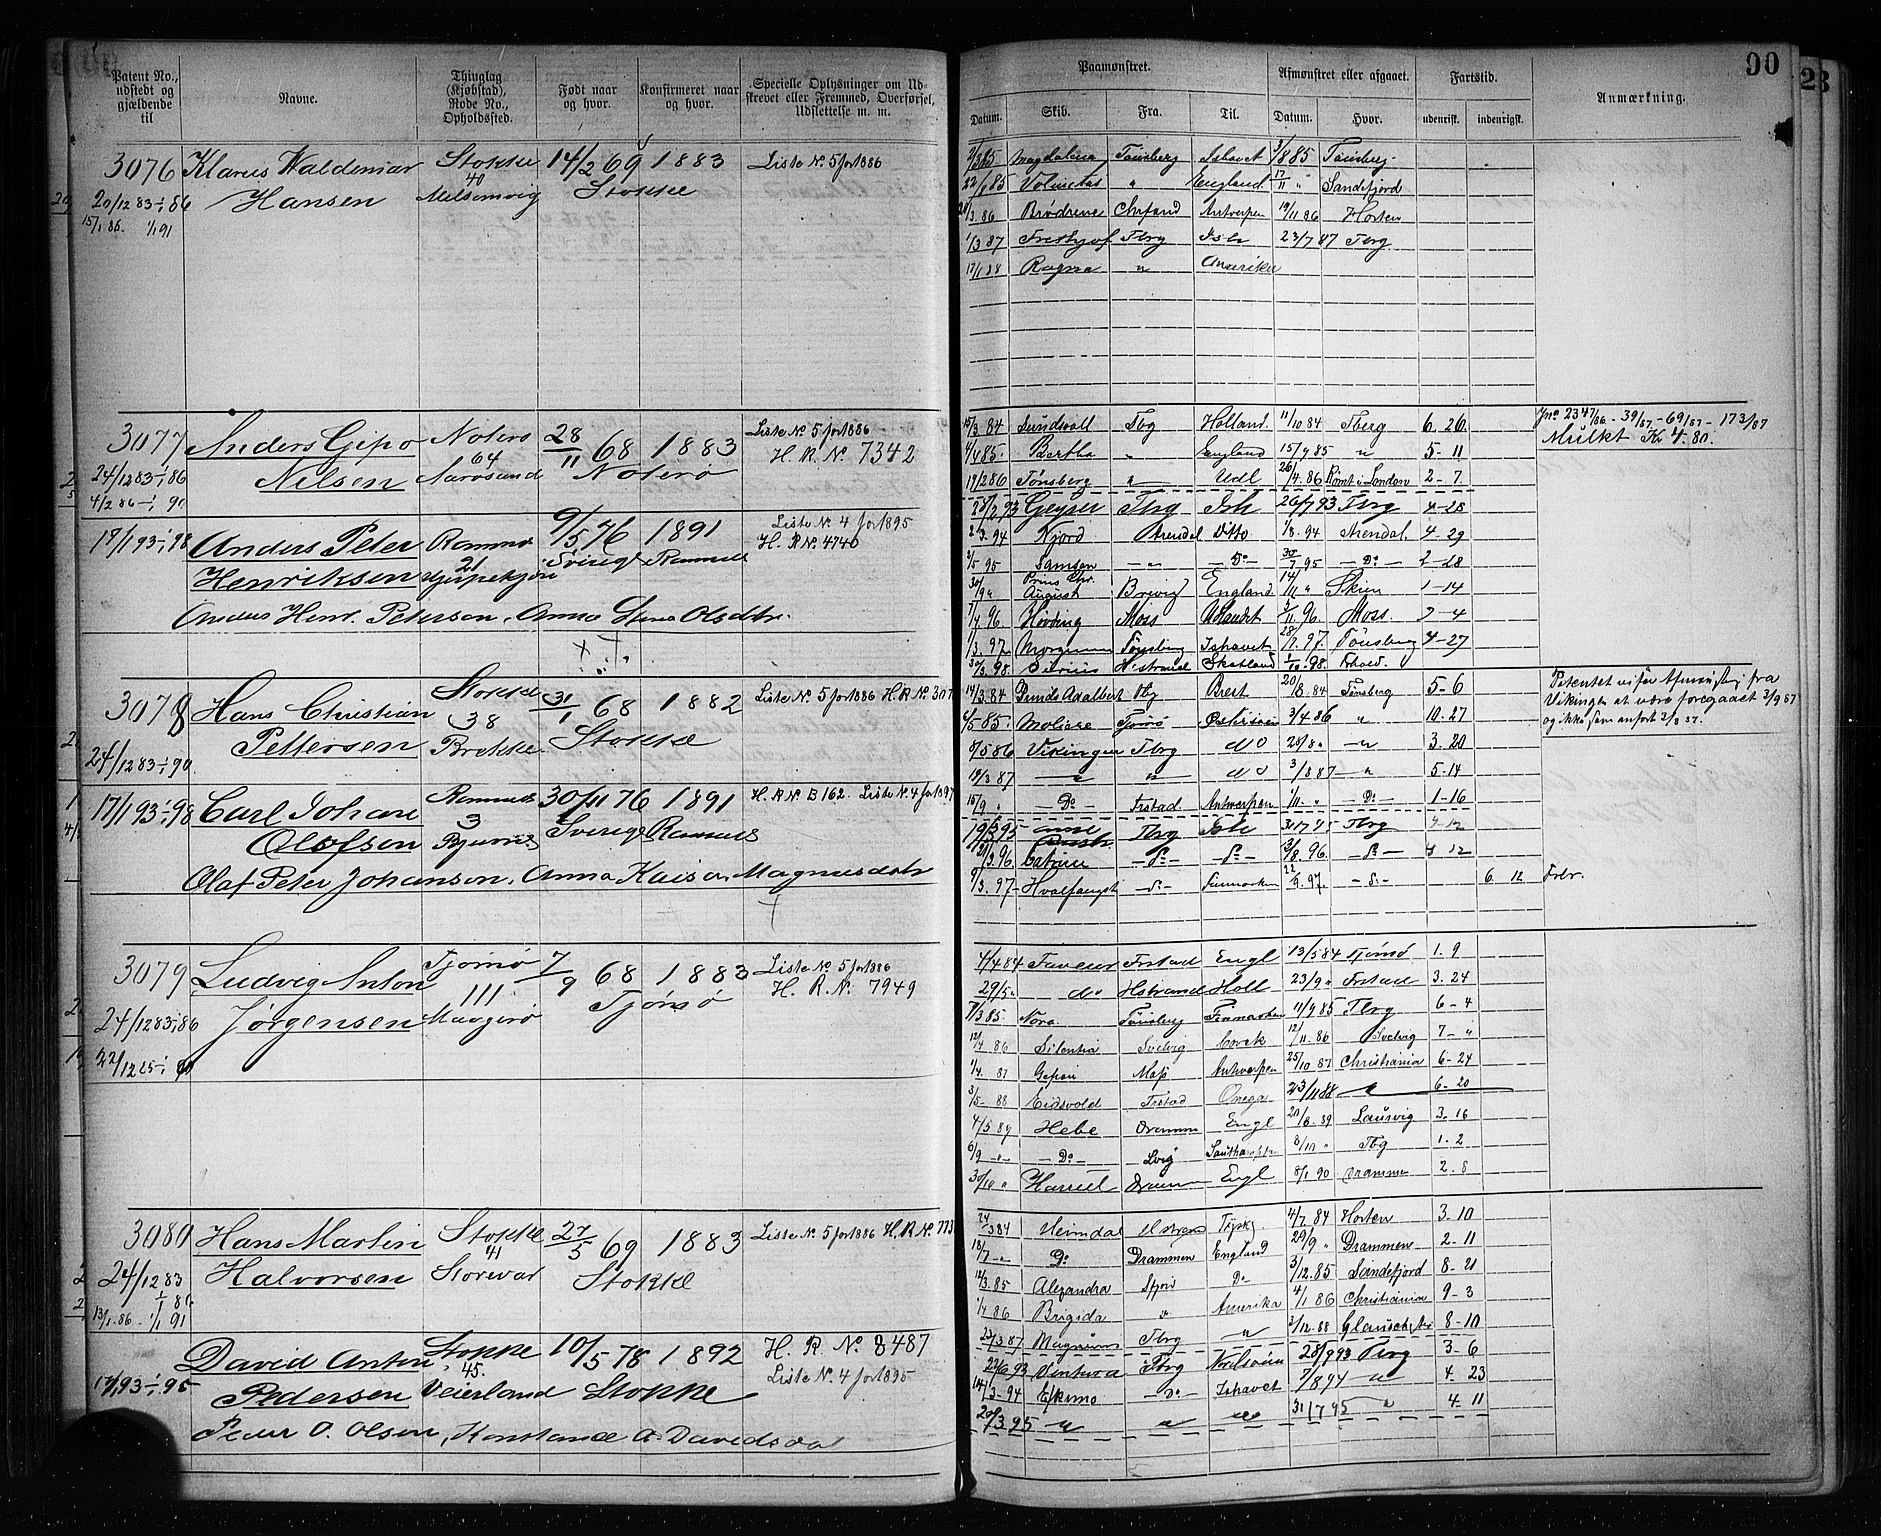 90
23
Patent No., udstedt og gjældende til
Navne.
Thinglag (Kjøbstad), Rode No., Opholdssted.
Født naar og hvor.
Konfirmeret naar og hvor.
Specielle Oplysninger om Udskrevet eller Fremmed, Overførsel, Udslettelse m. m.
Paamønstret.
Afmønstret eller afgaaet.
Fartstid.
Anmærkning.
Datum.
Skib.
Fra.
Til.
Datum.
Hvor.
udenrigsk.
indenrigsk.
3076 Klarus Waldemar Stokke 14/2 69 1883 Liste No. 5 for 1886
20/12 83-1/1 86 Hansen 40 Melsomvig Stokke
15/1 86. 1/1 91
Magdalena Tønsberg Ishavet 3/8 85 Tønsberg
22/8 85 Voluntas " England 17/11 " Sandefjord
3.86 Brødrene Chrsand Antwerpen 19/11 86 Horten
1/3 87 Tbrg Ish 23/7 87 Tbrg
Ragna " Amerika
3077 Anders Gipø Nøterø 28/11 68 1883 Liste No. 5 for 1886
24/12 83-1/1 86 Nilsen 64 Aarøsund Nøterø H. R. No. 7342
4/2 86-1/1 90
15/3 84 Sundsvall Tbg Holland 11/10 84 Tberg 6-26
Bertha " England 15/9 85 " 5-11
19/2 86 Tønsberg " Udl 26/4.86 Rømt i London 2-7.
Jno 2347/86 - 39/87 - 69/87 - 173/87
Mulkt Kr 4.80.
17/1 93-1/1 98 Anders Peter Ramnes 9/5 76 1891 Liste No. 4 for 1895
Henriksen 21 Sverige Ramnes H. R. No. 4740
Anders Henr. Petersen, Anna Stina Olsdtr.
28/2 93 Geyser Tbrg Ish 26/7 93 Tbrg 4-28
2/3.94 Fjord Arendal Ditto 1/8.94 Arendal 4-29
2/5 95 Samson - " - - Do - 30/7 95 - Do - 2-28
30/9 " Prins Chr. August Brevig England 14/11 " Skien 1-14
7/7 96 Høvding Moss Udlandet 3/11 96 Moss. 3-4
1/3.97 Morgenen Tønsberg Ishavet 28/7.97. Tønsberg 4-27
30/3.98 Sirius Hstrand Skotland 1/10.98.
3078 Hans Christian Stokke 31/1 68 1882 Liste No. 5 for 1886 H. R. No. 307
24/12 83-1/1 90 Pettersen 38 Brekke Stokke
14/3.84 Gunde Adalbert Tbg Brest 20/8.84 Tønsberg 5-6
2/5 85 Moliere Tjømø Østersøen 3/4 86 " 10-27
8/5 86 Vikingen Tbrg do 28/8 " - " 3-20
19/3 87 - " - " do 3/8 87 - " 5-14
15/9 " - Do - Frstad. Antwerpen 1/11 " - Do - 1-16
Patentet viser Afmønstring fra
Vikingen at være foregaaet 3/9 87
og ikke som anført 3/8 87.
17/1 93-1/1 98 Carl Johan Ramnes 30/11 76 1891 H. R. No. B 162. Liste No. 4 for 1897
Olofsen 3 Sverige Ramnes
Olaf Peter Johanson, Anna Kaisa Magnusdotr
Tbrg Ish 31/7 95 Tbrg 4-12
Catrine - Do - - Do - 3/8.96 - Do - 4 12
9/3.97 Hvalfangst - Do - Finmarken 22/9.97. - Do - 6. 12 Frbr.
3079 Ludvig Anton Tjømø 7/9 68 1883 Liste No. 5 for 1886
24/12 83-86 Jørgensen 111 Maagerø Tjømø H. R. No. 7949
22/12 85-1/1 90
4/4 84 Faveur Frstad Engl 13/5 84 Tjømø 1. 9
29/5 " do Hstrand Holl 23/9 " Frstad 3. 24
7/3 85 Nora Tønsberg Finmarken 11/9 85 Tbrg 6-4
12/4.86 Silentia Svelvig Cork 12/11.86 Svelvig 7- "
1/4.87 Moss Antwerpen 25/10 87 Christiania 6-24
3/5-88 Eidsvold Frstad Onega 23/11 88 " 6-20
4/5 89 Hebe Drammen Engl 20/8.89 Laurvig 3-16
6/9 - " - - Do - Lvig Southampton 8/10 " Tbg 1. 2
30/10 " Harriet Drammen Engl 8/1 90 Drammen 2. 8
3080 Hans Martin Stokke 27/5 69 1883 Liste No. 5 for 1886 H. R. No. 773
24/12 83 Halvorsen 41 Storevar Stokke
1/1 86
13/1.86-1/1 91
24/3 84 Heimdal Hstrand Tysk. 4/7 84 Horten 3. 10
18/7 - " Do Drammen England 29/9 " Drammen 2. 11
12/3.85 Alexandra Sfjord Do 3/12.85 Sandefjord 8-21
1/4 86 Brigida " Amerika 4/1 86 Christiania 9-3
23/3 87 Magnum Tbrg " 3/12.88 8-10
David Anton Stokke 10/5 78 1892 H. R. No. 8487
17/1 93-1/1 95 Pedersen 45. Veierland Stokke Liste No. 4 for 1895
Peder O. Olsen, Konstance A. Davidsdat
22/6 93 Ventura Tbrg 28/9 93 Tbrg 3-6
14/3-94 Eskimo - Do - Ishavet 7/8 94 " 4-23
20/3 95 " " do 31/7 95 " 4-11